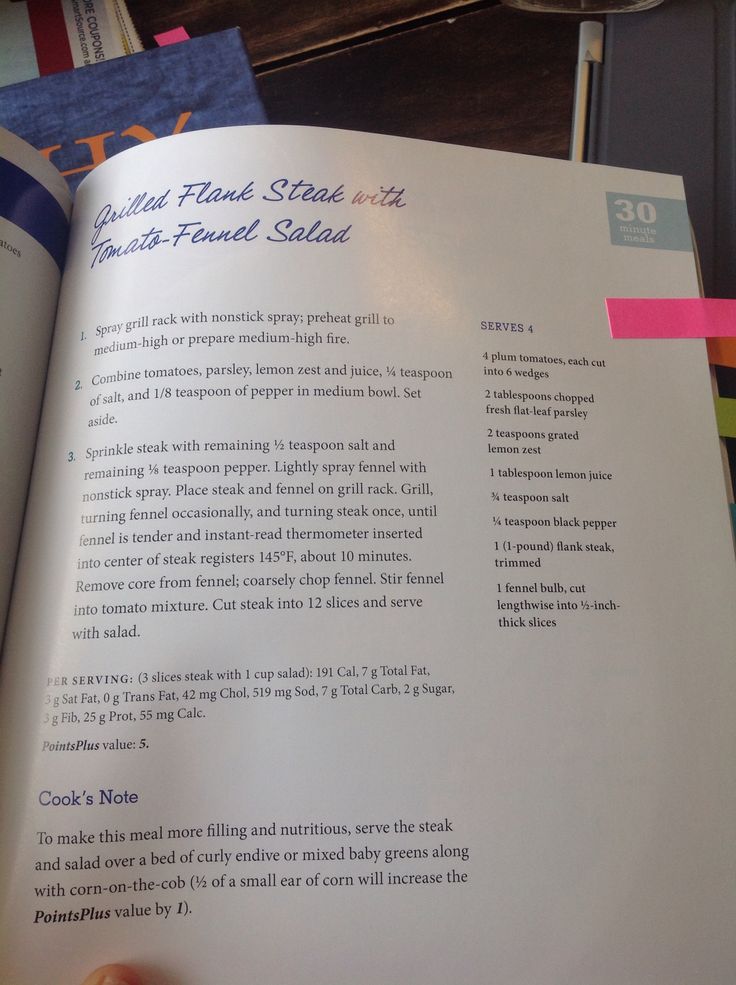 ORE COUPONS!
martSource.com a
HY
atoes
Grilled Flank Steak with
Tomato-Fennel Salad
30
minute
meals
1. Spray grill rack with nonstick spray; preheat grill to
medium-high or prepare medium-high fire.
2. Combine tomatoes, parsley, lemon zest and juice, ¼ teaspoon
of salt, and 1/8 teaspoon of pepper in medium bowl. Set
aside.
3. Sprinkle steak with remaining ½ teaspoon salt and
remaining ⅛ teaspoon pepper. Lightly spray fennel with
nonstick spray. Place steak and fennel on grill rack. Grill,
turning fennel occasionally, and turning steak once, until
fennel is tender and instant-read thermometer inserted
into center of steak registers 145°F, about 10 minutes.
Remove core from fennel; coarsely chop fennel. Stir fennel
into tomato mixture. Cut steak into 12 slices and serve
with salad.
PER SERVING: (3 slices steak with 1 cup salad): 191 Cal, 7 g Total Fat,
3 g Sat Fat, 0 g Trans Fat, 42 mg Chol, 519 mg Sod, 7 g Total Carb, 2 g Sugar,
3 g Fib, 25 g Prot, 55 mg Calc.
PointsPlus value: 5.
Cook's Note
To make this meal more filling and nutritious, serve the steak
and salad over a bed of curly endive or mixed baby greens along
with corn-on-the-cob (½ of a small ear of corn will increase the
PointsPlus value by 1).
SERVES 4
4 plum tomatoes, each cut
into 6 wedges
2 tablespoons chopped
fresh flat-leaf parsley
2 teaspoons grated
lemon zest
1 tablespoon lemon juice
¾ teaspoon salt
¼ teaspoon black pepper
1 (1-pound) flank steak,
trimmed
1 fennel bulb, cut
lengthwise into ½-inch-
thick slices